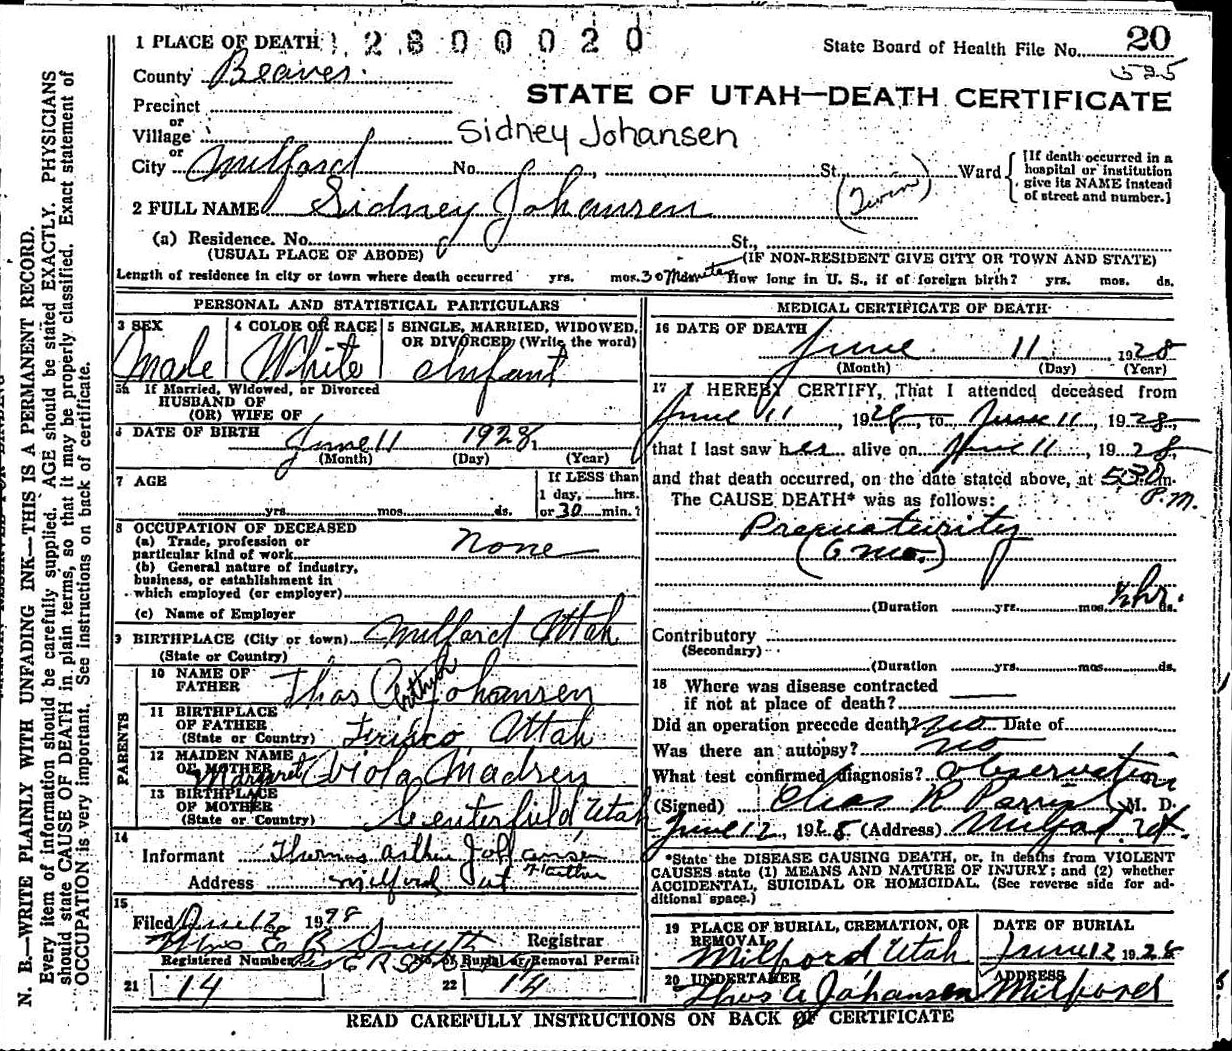 1 PLACE OF DEATH 2800020 State Board of Health File No. 20
County Beaver. 525
STATE OF UTAH—DEATH CERTIFICATE
Precinct
or
Village Sidney Johansen
or
City Milford No. St., Ward {[If death occurred in a hospital or institution give its NAME instead of street and number.]
2 FULL NAME Sidney Johansen (Twin)
(a) Residence. No. St.,
(USUAL PLACE OF ABODE) (IF NON-RESIDENT GIVE CITY OR TOWN AND STATE)
Length of residence in city or town where death occurred yrs. mos. 30 Minutes How long in U. S., if of foreign birth? yrs. mos. ds.
PERSONAL AND STATISTICAL PARTICULARS
3 SEX 4 COLOR OR RACE 5 SINGLE, MARRIED, WIDOWED, OR DIVORCED (Write the word)
Male White Infant
5a If Married, Widowed, or Divorced
HUSBAND OF
(OR) WIFE OF
6 DATE OF BIRTH June 11 1928
(Month) (Day) (Year)
7 AGE If LESS than
1 day, hrs.
yrs. mos. ds. or 30 min.?
8 OCCUPATION OF DECEASED
(a) Trade, profession or
particular kind of work None
(b) General nature of industry,
business, or establishment in
which employed (or employer)
(c) Name of Employer
9 BIRTHPLACE (City or town) Milford Utah
(State or Country)
PARENTS
10 NAME OF
FATHER Thos Arthur Johansen
11 BIRTHPLACE
OF FATHER
(State or Country) Frisco, Utah
12 MAIDEN NAME
OF MOTHER Margaret Viola Madsen
13 BIRTHPLACE
OF MOTHER
(State or Country) Centerfield Utah
14
Informant Thomas Arthur Johansen
Address Milford Ut Father
15
Filed June 12, 1928
Mrs E. B. Smyth Registrar
Registered Number No. of Burial or Removal Permit
21 14 22 14
MEDICAL CERTIFICATE OF DEATH
16 DATE OF DEATH
June 11 1928
(Month) (Day) (Year)
17 I HEREBY CERTIFY, That I attended deceased from
June 11, 1928, to June 11, 1928,
that I last saw her alive on June 11, 1928,
and that death occurred, on the date stated above, at 530 m.
The CAUSE DEATH* was as follows: P.M.
Prematurity
(6 mo.)
(Duration yrs. mos. ½ hr. ds.
Contributory
(Secondary)
(Duration yrs. mos. ds.
18 Where was disease contracted
if not at place of death?
Did an operation precede death? no Date of
Was there an autopsy? no
What test confirmed diagnosis? Observation
(Signed) Chas R Parrish M. D.
June 12, 1928 (Address) Milford Ut.
*State the DISEASE CAUSING DEATH, or, in deaths from VIOLENT
CAUSES state (1) MEANS AND NATURE OF INJURY; and (2) whether
ACCIDENTAL, SUICIDAL OR HOMICIDAL. (See reverse side for ad-
ditional space.)
19 PLACE OF BURIAL, CREMATION, OR REMOVAL DATE OF BURIAL
Milford Utah June 12 1928
20 UNDERTAKER ADDRESS
Thos A Johansen Milford
READ CAREFULLY INSTRUCTIONS ON BACK OF CERTIFICATE
N. B.—WRITE PLAINLY WITH UNFADING INK—THIS IS A PERMANENT RECORD.
Every item of information should be carefully supplied. AGE should be stated EXACTLY. PHYSICIANS
should state CAUSE OF DEATH in plain terms, so that it may be properly classified. Exact statement of
OCCUPATION is very important. See instructions on back of certificate.